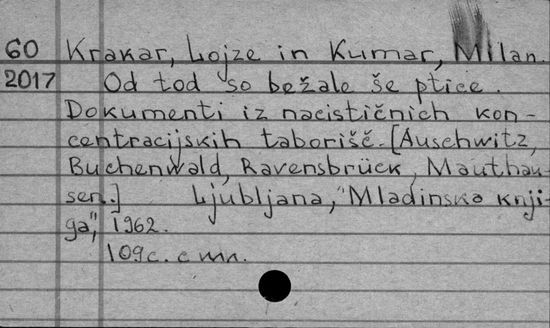 60 Krakar, Lojze in Kumar, Milan.
2017 Od tod so bežale še ptice.
Dokumenti iz nacističnih kon-
centracijskih taborišč. [Auschwitz,
Buchenwald, Ravensbrück, Mauthau-
sen.] Ljubljana, "Mladinska knji-
ga", 1962.
109 с. с илл.